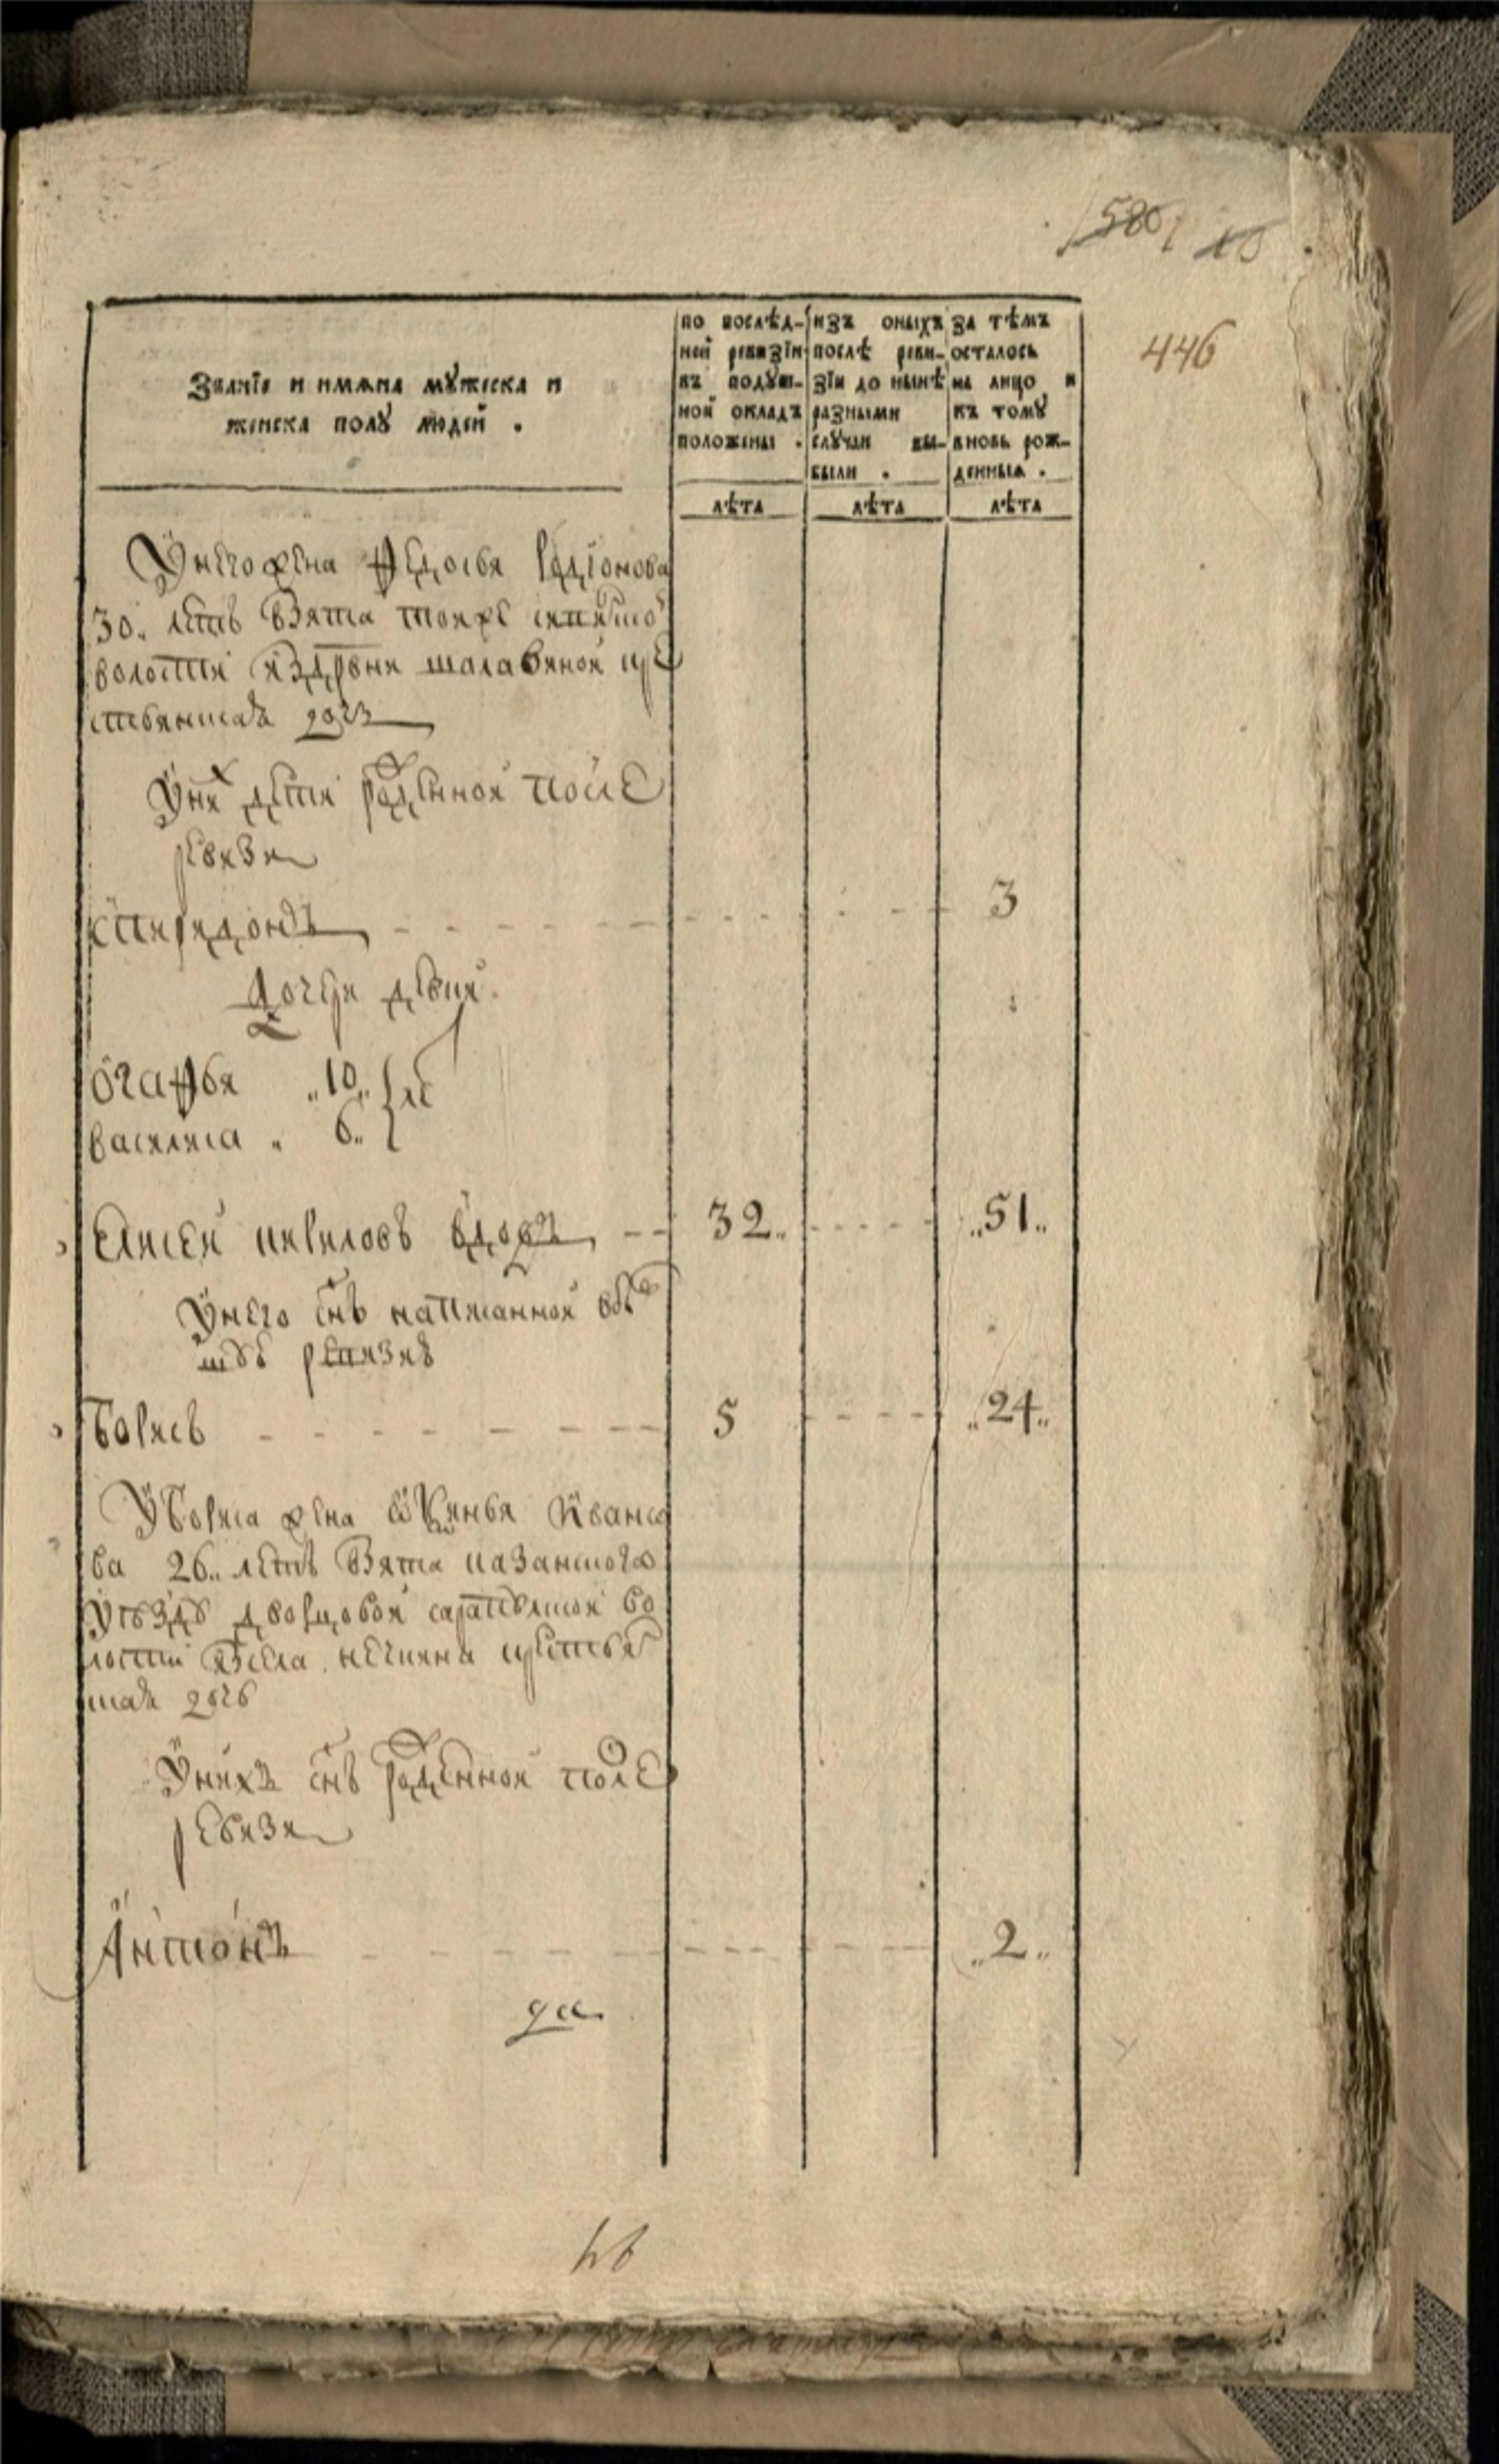 580 10
446
Званїе и имѧна мꙋжеска и
женска полꙋ людей .
по послѣд-
ней ревизїи
въ подꙋш-
ной окладъ
положены .
изъ оныхъ
послѣ реви-
зїи до нынѣ
разными
слꙋчаи вы-
были .
за тѣмъ
осталось
на лицо и
къ томꙋ
вновь рож-
денныѧ .
лѣта лѣта лѣта
У него жена Федосья Родїонова
30. летъ взята тоя же
волости из дрвни шалавиной кре
стьянская дочь
У них дети рожденной после
ревизи
Спиридонъ 3
Дочери девки
Огафья 10
василиса 6 ле
Елисей вдовъ 32 51
У него снъ написанной въ б
шей ревизиї
Борисъ 5 24
У Бориса жена Ивано
ва 26 летъ взята казанского
уезду дворцовой сарапульской во
лости исела крестья
ская дочь
У нихъ снъ рожденной после
ревизи
Антонъ 2